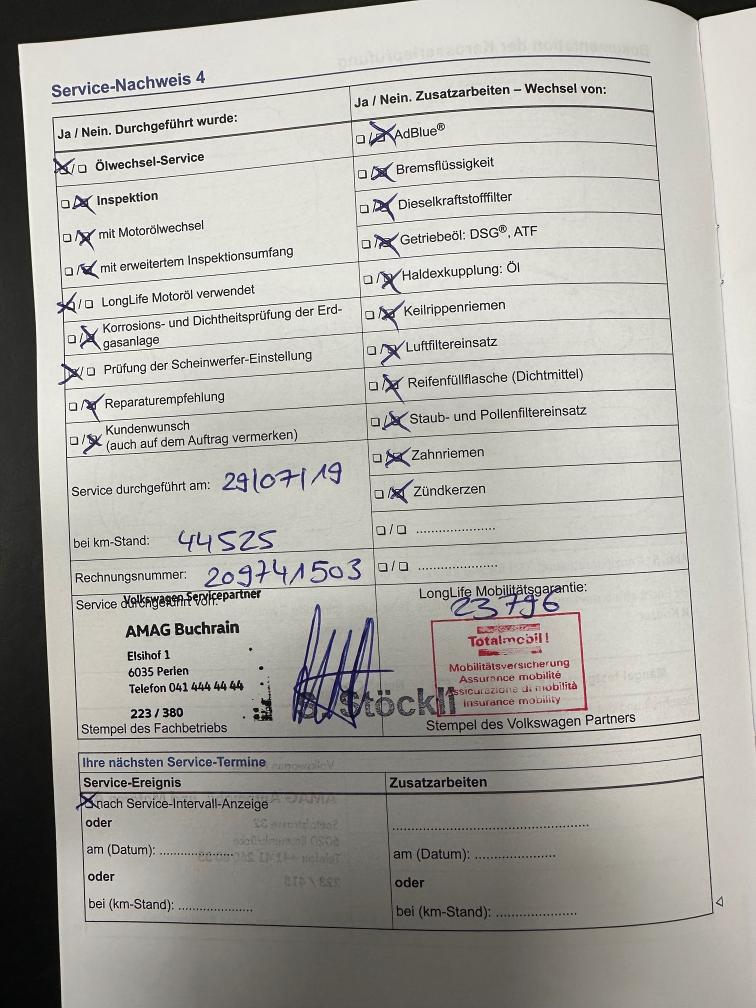 Service-Nachweis 4
Ja / Nein. Durchgeführt wurde:
☒/☐ Ölwechsel-Service
☐/☒ Inspektion
☐/☒ mit Motorölwechsel
☐/☒ mit erweitertem Inspektionsumfang
☒/☐ LongLife Motoröl verwendet
☐/☒ Korrosions- und Dichtheitsprüfung der Erd-
gasanlage
☒/☐ Prüfung der Scheinwerfer-Einstellung
☐/☒ Reparaturempfehlung
☐/☒ Kundenwunsch
(auch auf dem Auftrag vermerken)
Service durchgeführt am: 29/07/19
bei km-Stand: 44525
Rechnungsnummer: 209741503
Service durchgeführt von:
Volkswagen Servicepartner
AMAG Buchrain
Elsihof 1
6035 Perlen
Telefon 041 444 44 44
223 / 380
Stöckli
Stempel des Fachbetriebs
Ja / Nein. Zusatzarbeiten – Wechsel von:
☐/☒ AdBlue®
☐/☒ Bremsflüssigkeit
☐/☒ Dieselkraftstofffilter
☐/☒ Getriebeöl: DSG®, ATF
☐/☒ Haldexkupplung: Öl
☐/☒ Keilrippenriemen
☐/☒ Luftfiltereinsatz
☐/☒ Reifenfüllflasche (Dichtmittel)
☐/☒ Staub- und Pollenfiltereinsatz
☐/☒ Zahnriemen
☐/☒ Zündkerzen
☐/☐ ......................
☐/☐ ......................
LongLife Mobilitätsgarantie:
23796
Totalmobil!
Mobilitätsversicherung
Assurance mobilité
Assicurazione di mobilità
Insurance mobility
Stempel des Volkswagen Partners
Ihre nächsten Service-Termine
Service-Ereignis
☒ nach Service-Intervall-Anzeige
oder
am (Datum): ....................
oder
bei (km-Stand): ....................
Zusatzarbeiten
..................................................
am (Datum): ......................
oder
bei (km-Stand): ......................